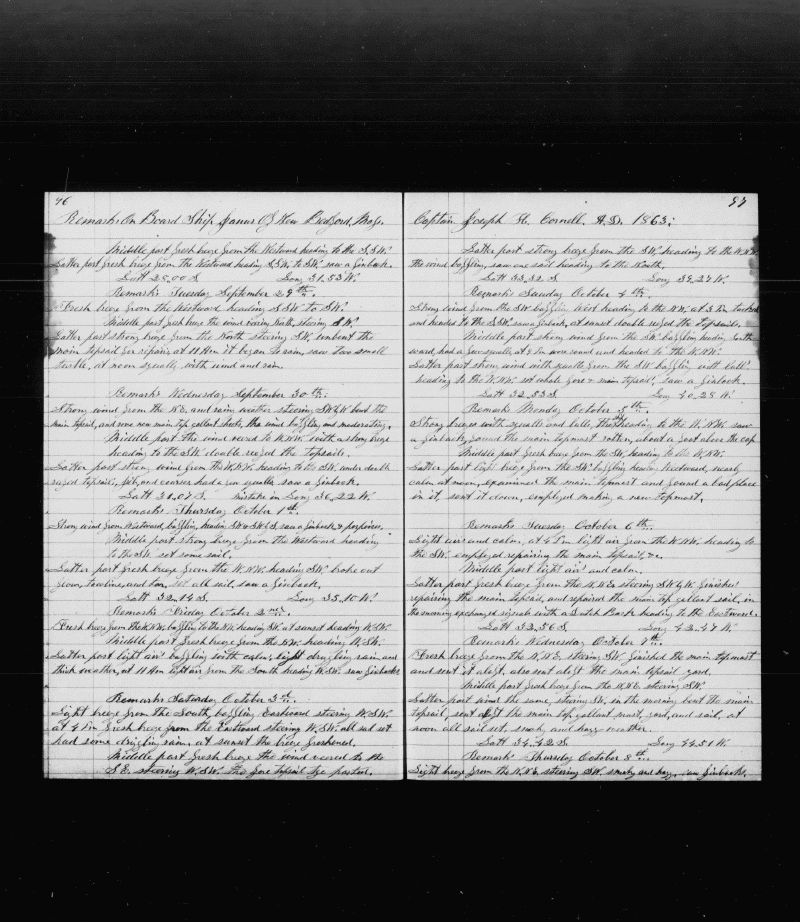 46
Remarks On Board Ship Janus Of New Bedford, Mass.
Middle part fresh breeze from the Westward heading to the S.SW.
Latter part fresh breeze from the Westward heading S.SW. to SW. saw a finback.
Latt 28.00 S. Long 31.53 W.
Remarks Tuesday September 29th.
Fresh breeze from the Westward heading S.SW to SW.
Middle part fresh breeze the wind veering North, steering SW.
Latter part strong breeze from the North steering SW. unbent the
main topsail for repairs at 11 Am it began to rain, saw two small
at noon squally with wind and rain.
Remarks Wednesday September 30th.
Strong wind from the N.E. and rain weather steering SW bent the
main topsail, and some new main top gallant sheets, the wind baffling and moderating.
Middle part the wind veered to W.NW. with a strong breeze
heading to the SW. double reefed the topsails.
Latter part strong wind from the W.NW. heading to the SW. under double
reefed topsails, jib, and courses had a few squalls saw a finback.
Latt 31.07 S. mistake in Long 36.22 W.
Remarks Thursday October 1st.
Strong wind from Westward, baffling, heading SW & SW by S. saw a finback & porpoises.
Middle part strong breeze from the Westward heading
to the SW. set some sail.
Latter part fresh breeze from the W.NW. heading SW. broke out
flour, towline, and set all sail, saw a finback.
Latt 32.14 S. Long 35.10 W.
Remarks Friday October 2nd.
Fresh breeze from the W.NW. baffling to the NW. heading SW. at sunset heading W.SW.
Middle part fresh breeze from the NW. heading W.SW.
Latter part light air baffling with calm, light drizzling rain and
thick weather, at 11 Am light air from the South heading W.SW. saw finbacks
Remarks Saturday October 3rd.
Light breeze from the South, baffling Eastward steering W.SW.
at 4 Pm fresh breeze from the Eastward steering W.SW. all sail set
had some drizzling rain, at sunset the breeze freshened.
Middle part fresh breeze the wind veered to the
S.E. steering W.SW. the fore topsail tye parted.
97
Captain Joseph H. Cornell. A.D. 1863.
Latter part strong breeze from the SW. heading to the W.NW.
the wind baffling, saw one sail heading to the North.
Latt 33.32 S. Long 39.27 W.
Remarks Sunday October 4th.
Strong wind from the SW baffling West heading to the NW. at 3 Pm tacked
and headed to the S.SW. saw a finback, at sunset double reefed the topsails.
Middle part strong wind from the SW. baffling heading South-
ward, had a few squalls, at 4 Am wore round and headed to the W.NW.
Latter part strong wind with squalls from the SW baffling with lulls
heading to the W.NW. set whole fore & main topsail, saw a finback.
Latt 32.53 S. Long 40.28 W.
Remarks Monday October 5th.
Strong breeze with squalls and lulls, heading to the W.NW. saw
a finback, found the main topmast rotten, about a foot above the cap
Middle part fresh breeze from the SW. heading to the W.NW.
Latter part light breeze from the SW. baffling heading Westward, nearly
calm at noon, examined the main topmast and found a bad place
in it, sent it down, employed making a new topmast.
Remarks Tuesday October 6th.
Light air and calm, at 4 Pm light air from the W.NW. heading to
the SW. employed repairing the main topsail, &c.
Middle part light air and calm.
Latter part fresh breeze from the steering SW by W. finished
repairing the main topsail, and repaired the main top gallant sail, in
the morning exchanged signals with a Dutch Bark heading to the Eastward.
Latt 33.56 S. Long 42.47 W.
Remarks Wednesday October 7th.
Fresh breeze from the N.NE. steering SW. finished the main topmast
and sent it aloft, also sent aloft the main topsail yard.
Middle part fresh breeze from the N.NE. steering SW.
Latter part wind the same, steering SW. in the morning bent the main
topsail, sent aloft the main top gallant mast, yard, and sail, at
noon all sail set, smoky and hazy weather.
Latt 34.42 S. Long 44.51 W.
Remarks Thursday October 8th.
Light breeze from the N.NE. steering SW. smoky and hazy, saw finbacks.